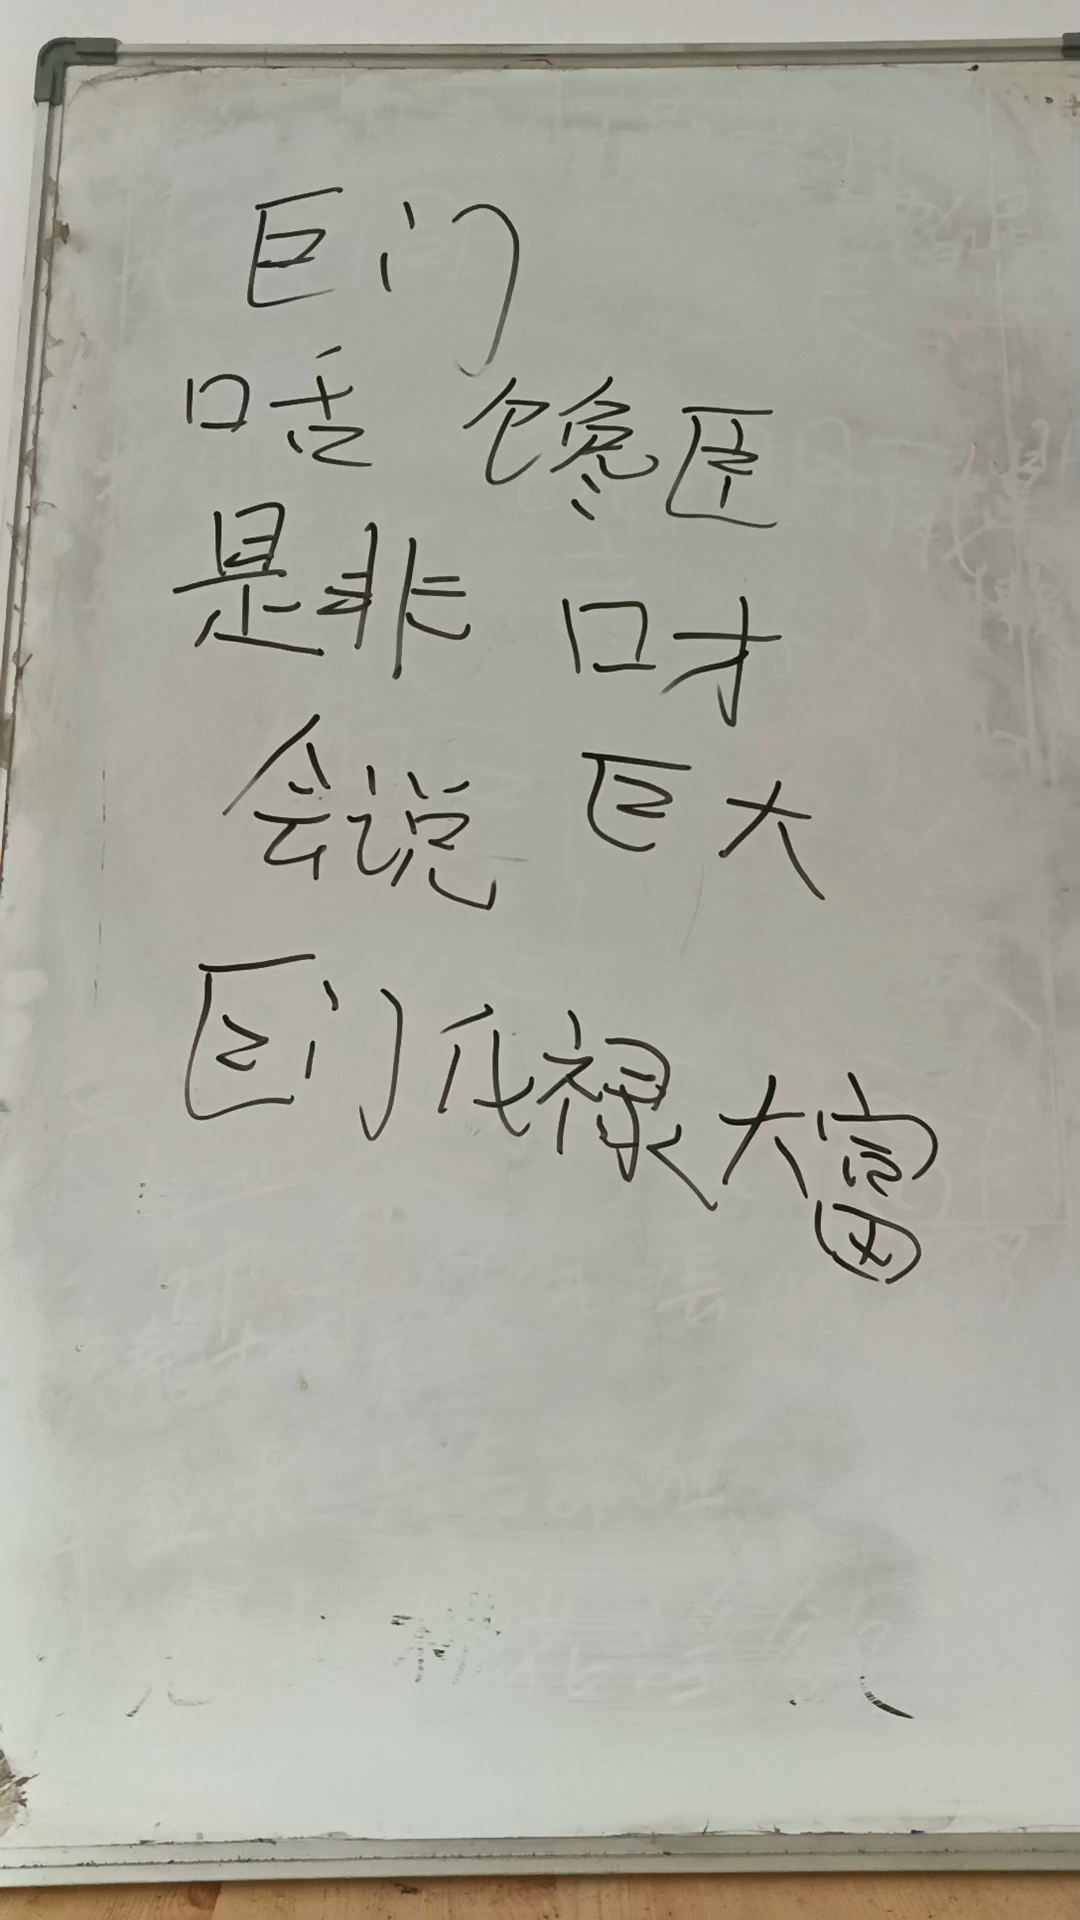 巨门
口舌 馋臣
是非 口才
会说 巨大
巨门化禄大富